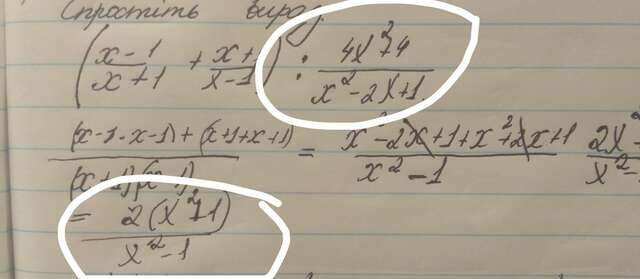 Спростіть вираз
(x-1/x+1 + x+1/x-1) : 4x²+4/x²-2x+1
(x-1·x-1)+(x+1+x+1)/(x+1)(x-1) = x²-2x+1+x²+2x+1/x²-1 2x²
= 2(x²+1)/x²-1